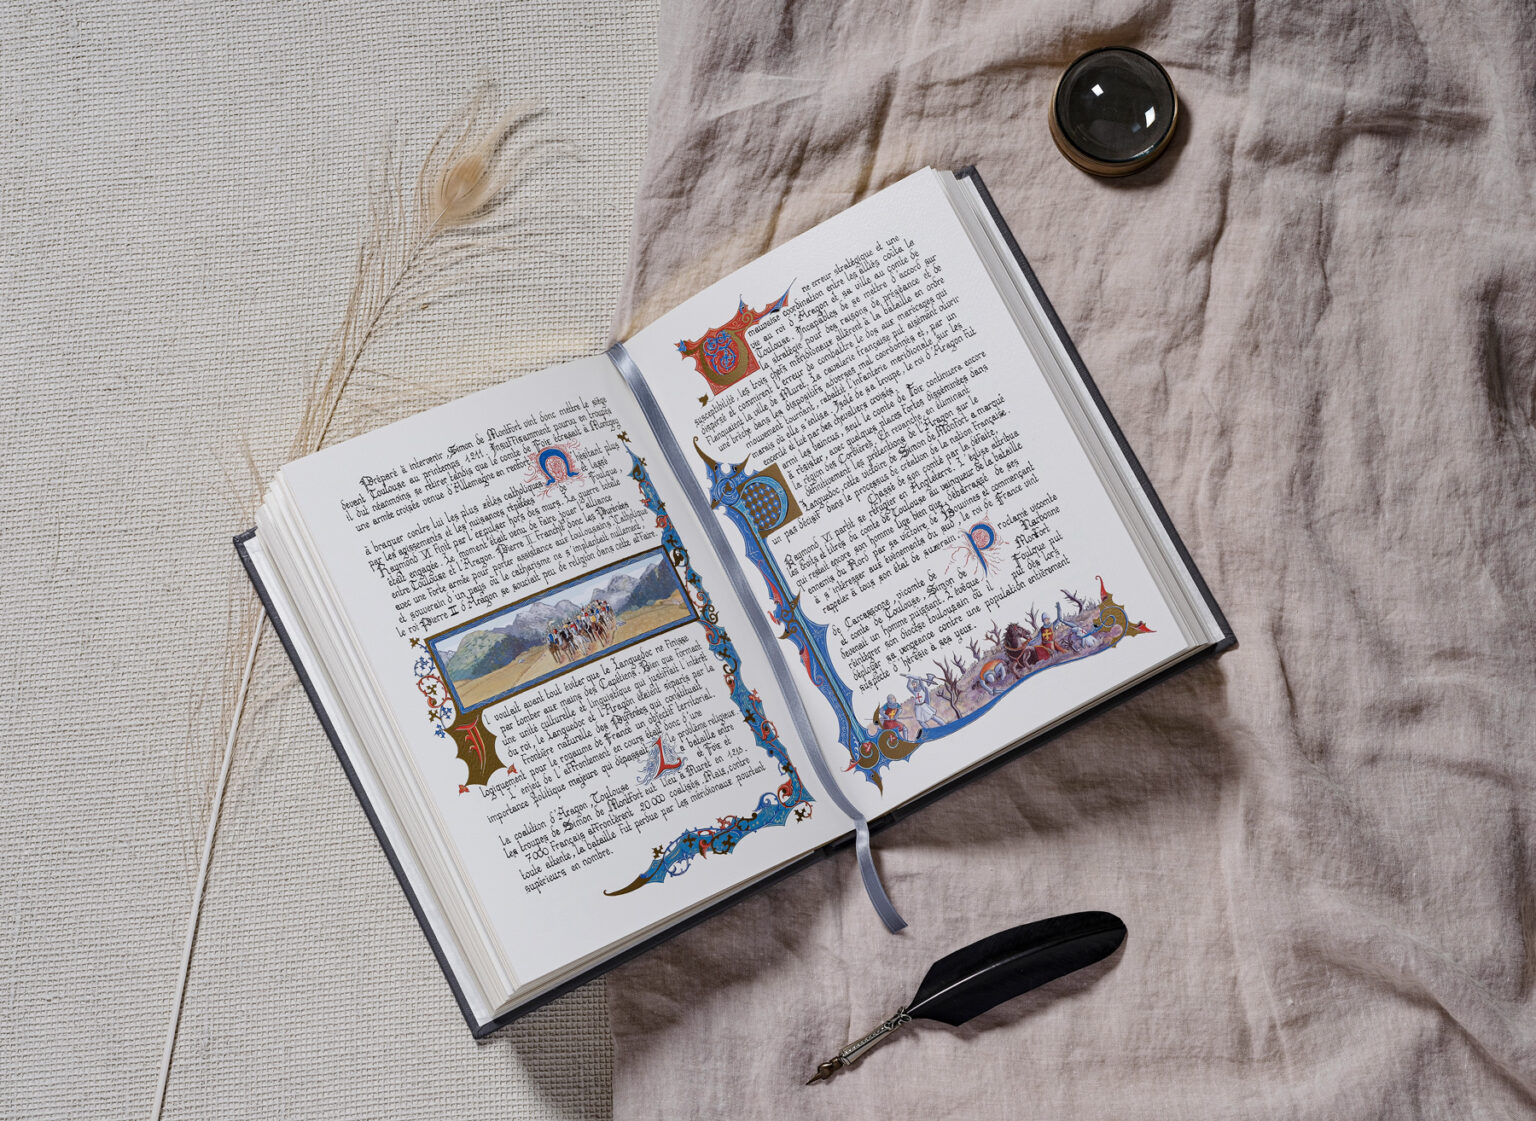 Préparé à intervenir, Simon de Montfort vint donc mettre le siège
devant Toulouse au printemps 1211. Insuffisamment pourvu en troupes
il dut néanmoins se retirer tandis que le comte de Foix écrasait à Montgey
une armée croisée venue d'Allemagne en renfort
N'hésitant plus
à braquer contre lui les plus zélés catholiques et lassé
par les agissements et les nuisances répétées de Foulque,
Raymond VI finit par l'expulser hors des murs. La guerre totale
était engagée. Le moment était venu de faire jouer l'alliance
entre Toulouse et l'Aragon. Pierre II franchit donc les Pyrénées
avec une forte armée pour porter assistance aux toulousains. Catholique
et souverain d'un pays où le catharisme ne s'implantait nullement,
le roi Pierre II d'Aragon se souciait peu de religion dans cette affaire.
Il voulait avant tout éviter que le Languedoc ne finisse
par tomber aux mains des Capétiens. Bien que formant
une unité culturelle et linguistique qui justifiait l'intérêt
du roi, le Languedoc et l'Aragon étaient séparés par la
frontière naturelle des Pyrénées qui constituait
logiquement pour le royaume de France un objectif territorial.
L'enjeu de l'affrontement en cours était donc d'une
importance politique majeure qui dépassait le problème religieux.
La bataille entre
la coalition d'Aragon, Toulouse et Foix et
les troupes de Simon de Montfort eut lieu à Muret en 1213.
7000 Français affrontèrent 20 000 coalisés. Mais, contre
toute attente, la bataille fut perdue par les méridionaux pourtant
supérieurs en nombre.
Une erreur stratégique et une
mauvaise coordination entre les alliés coûta la
vie au roi d'Aragon et sa ville au comte de
Toulouse. Incapables de se mettre d'accord sur
la stratégie pour des raisons de préséance et de
susceptibilité, les trois chefs méridionaux allèrent à la bataille en ordre
dispersé et commirent l'erreur de combattre le dos aux marécages qui
flanquaient la ville de Muret. La cavalerie française put aisément ouvrir
une brèche dans les dispositifs adverses mal coordonnés et, par un
mouvement tournant, rabattit l'infanterie méridionale sur les
marais où elle s'enlisa. Isolé de sa troupe, le roi d'Aragon fut
encerclé et tué par des chevaliers croisés.
Parmi les vaincus, seul le comte de Foix continuera encore
à résister avec quelques places fortes disséminées dans
la région des Corbières. En revanche, en éliminant
définitivement les prétentions de l'Aragon sur le
Languedoc, cette victoire de Simon de Montfort a marqué
un pas décisif dans le processus de création de la nation française.
Chassé de son comté par la défaite,
Raymond VI partit se réfugier en Angleterre. L'église attribua
les droits et titres du comte de Toulouse au vainqueur de la bataille
qui restait encore son homme lige bien que, débarrassé de ses
ennemis du Nord par sa victoire de Bouvines et commençant
à s'intéresser aux événements du sud, le roi de France vint
rappeler à tous son état de suzerain.
Proclamé vicomte
de Carcassonne, vicomte de Narbonne
et comte de Toulouse, Simon de Montfort
devenait un homme puissant. L'évêque Foulque put
réintégrer son diocèse toulousain où il put dès lors
déployer sa vengeance contre une population entièrement
suspecte d'hérésie à ses yeux.